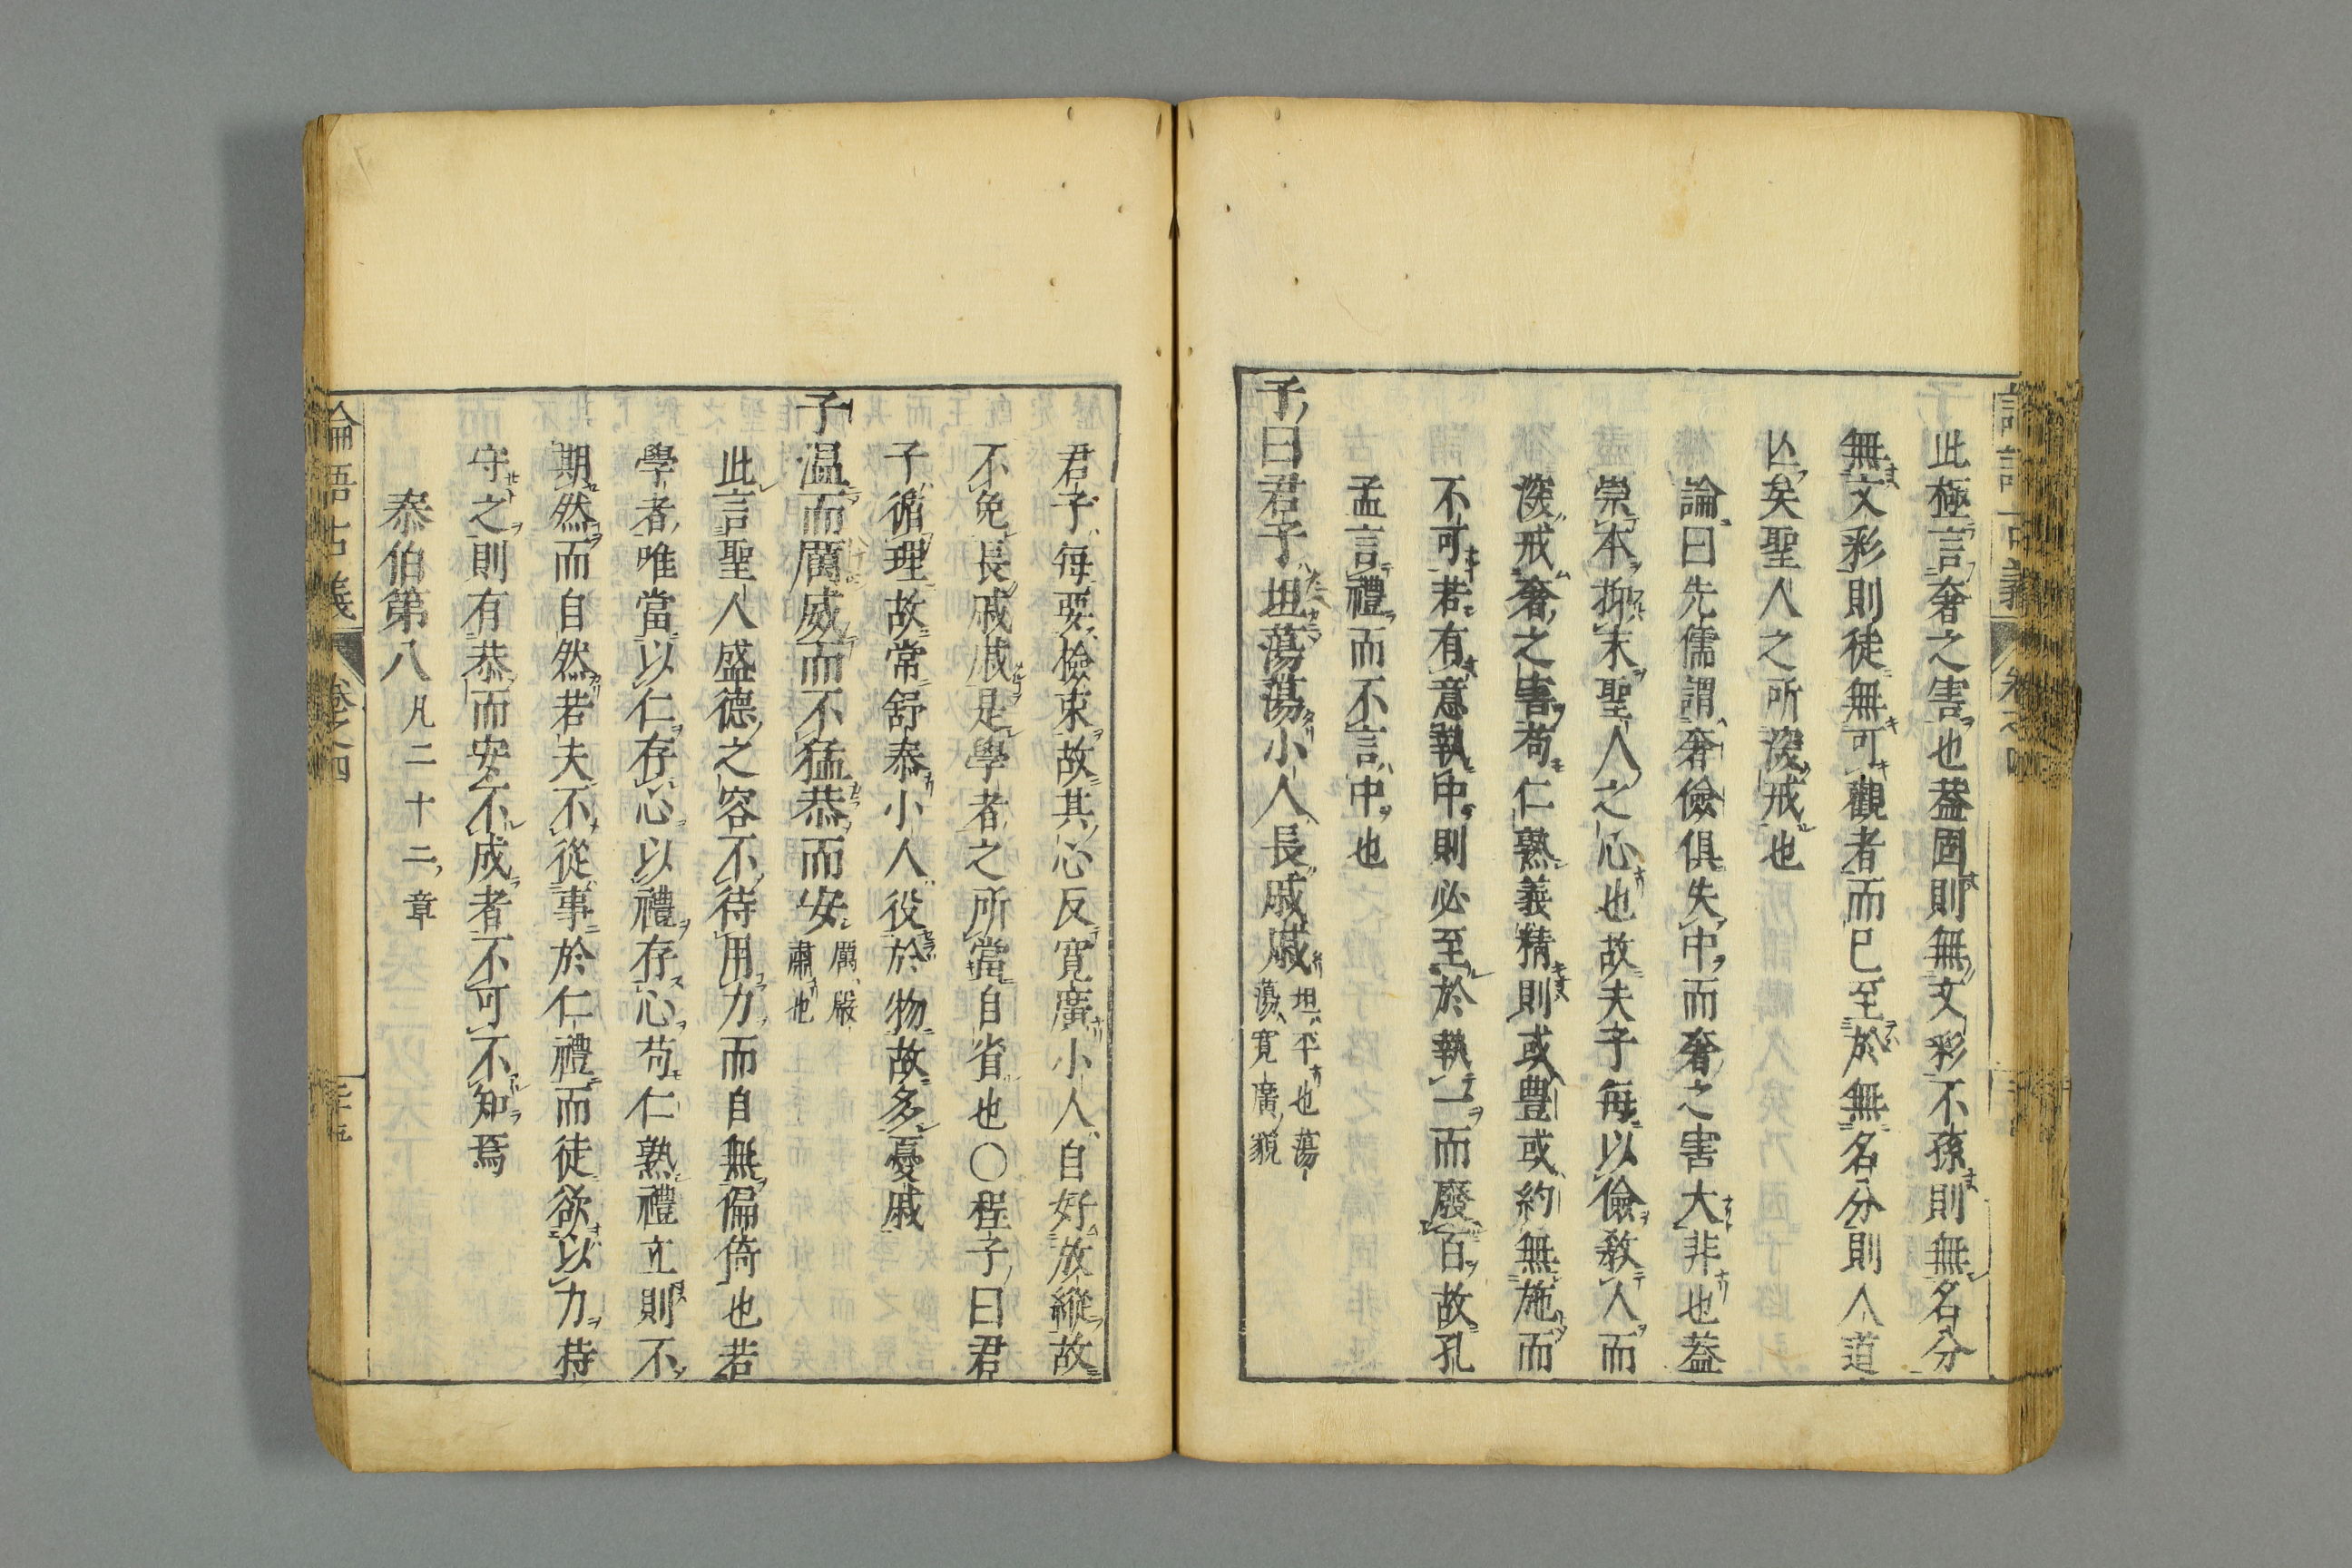 此極言奢之害也葢固則無文彩不孫則無名分
無文彩則徒無可觀者而已至於無名分則人道
亾矣聖人之所深戒也
論曰先儒謂奢儉俱失中而奢之害大非也葢
崇本抑末聖人之心也故夫子每以儉敎人而
深戒奢之害苟仁熟義精則或豊或約無施而
不可若有意執中則必至於執一而廢百故孔
孟言禮而不言中也
子曰君子坦蕩蕩小人長戚戚坦平也蕩蕩寛廣貌
君子每要檢束故其心反寛廣小人自好放縱故
不免長戚戚是學者之所當自省也〇程子曰君
子循理故常舒泰小人役於物故多憂戚
子温而厲威而不猛恭而安厲嚴肅也
此言聖人盛德之容不待用力而自無偏倚也若
學者唯當以仁存心以禮存心苟仁熟禮立則不
期然而自然若夫不從事於仁禮而徒欲以力持
守之則有恭而安不成者不可不知焉
泰伯第八 凡二十二章
論語古義 卷之四